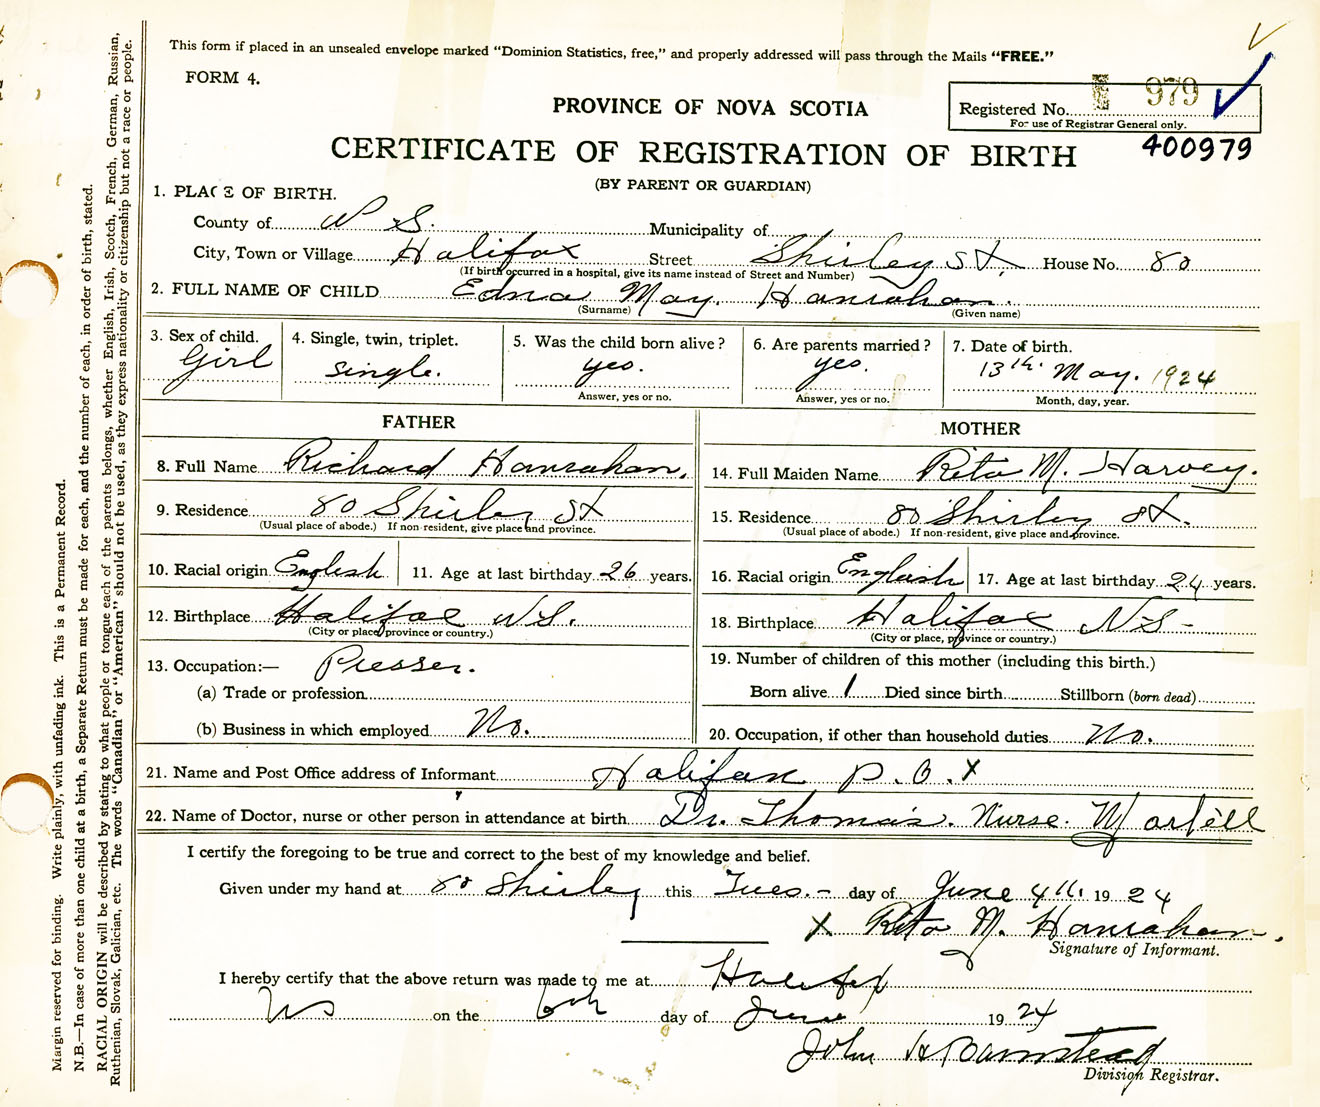 This form if placed in an unsealed envelope marked "Dominion Statistics, free," and properly addressed will pass through the Mails "FREE."
FORM 4.
PROVINCE OF NOVA SCOTIA
Registered No. 979
For use of Registrar General only.
400979
CERTIFICATE OF REGISTRATION OF BIRTH
(BY PARENT OR GUARDIAN)
1. PLACE OF BIRTH.
County of N S. Municipality of
City, Town or Village Halifax Street Shirley St. House No. 80
(If birth occurred in a hospital, give its name instead of Street and Number)
2. FULL NAME OF CHILD Edna May. Hanrahan.
(Surname) (Given name)
3. Sex of child. 4. Single, twin, triplet. 5. Was the child born alive? 6. Are parents married? 7. Date of birth.
Girl single. yes. yes. 13th. May. 1924
Answer, yes or no. Answer, yes or no. Month, day, year.
FATHER MOTHER
8. Full Name Richard Hanrahan, 14. Full Maiden Name Rita M. Harvey.
9. Residence 80 Shirley St 15. Residence 80 Shirley St.
(Usual place of abode.) If non-resident, give place and province. (Usual place of abode.) If non-resident, give place and province.
10. Racial origin English 11. Age at last birthday 26 years. 16. Racial origin English 17. Age at last birthday 24 years.
12. Birthplace Halifax N.S. 18. Birthplace Halifax N-S-
(City or place, province or country.) (City or place, province or country.)
13. Occupation:— Presser. 19. Number of children of this mother (including this birth.)
(a) Trade or profession Born alive 1 Died since birth Stillborn (born dead)
(b) Business in which employed No. 20. Occupation, if other than household duties No.
21. Name and Post Office address of Informant Halifax P.O. X
22. Name of Doctor, nurse or other person in attendance at birth Dr. Thomas. Nurse.
I certify the foregoing to be true and correct to the best of my knowledge and belief.
Given under my hand at 80 Shirley this Tues.- day of June 4th. 1924
X Rita M. Hanrahan.
Signature of Informant.
I hereby certify that the above return was made to me at Halifax
NS on the 6th day of June 1924
John H
Division Registrar.
Margin reserved for binding. Write plainly, with unfading ink. This is a Permanent Record.
N.B.—In case of more than one child at a birth, a Separate Return must be made for each, and the number of each, in order of birth, stated.
RACIAL ORIGIN will be described by stating to what people or tongue each of the parents belongs, whether English, Irish, Scotch, French, German, Russian,
Ruthenian, Slovak, Galician, etc. The words "Canadian" or "American" should not be used, as they express nationality or citizenship but not a race or people.